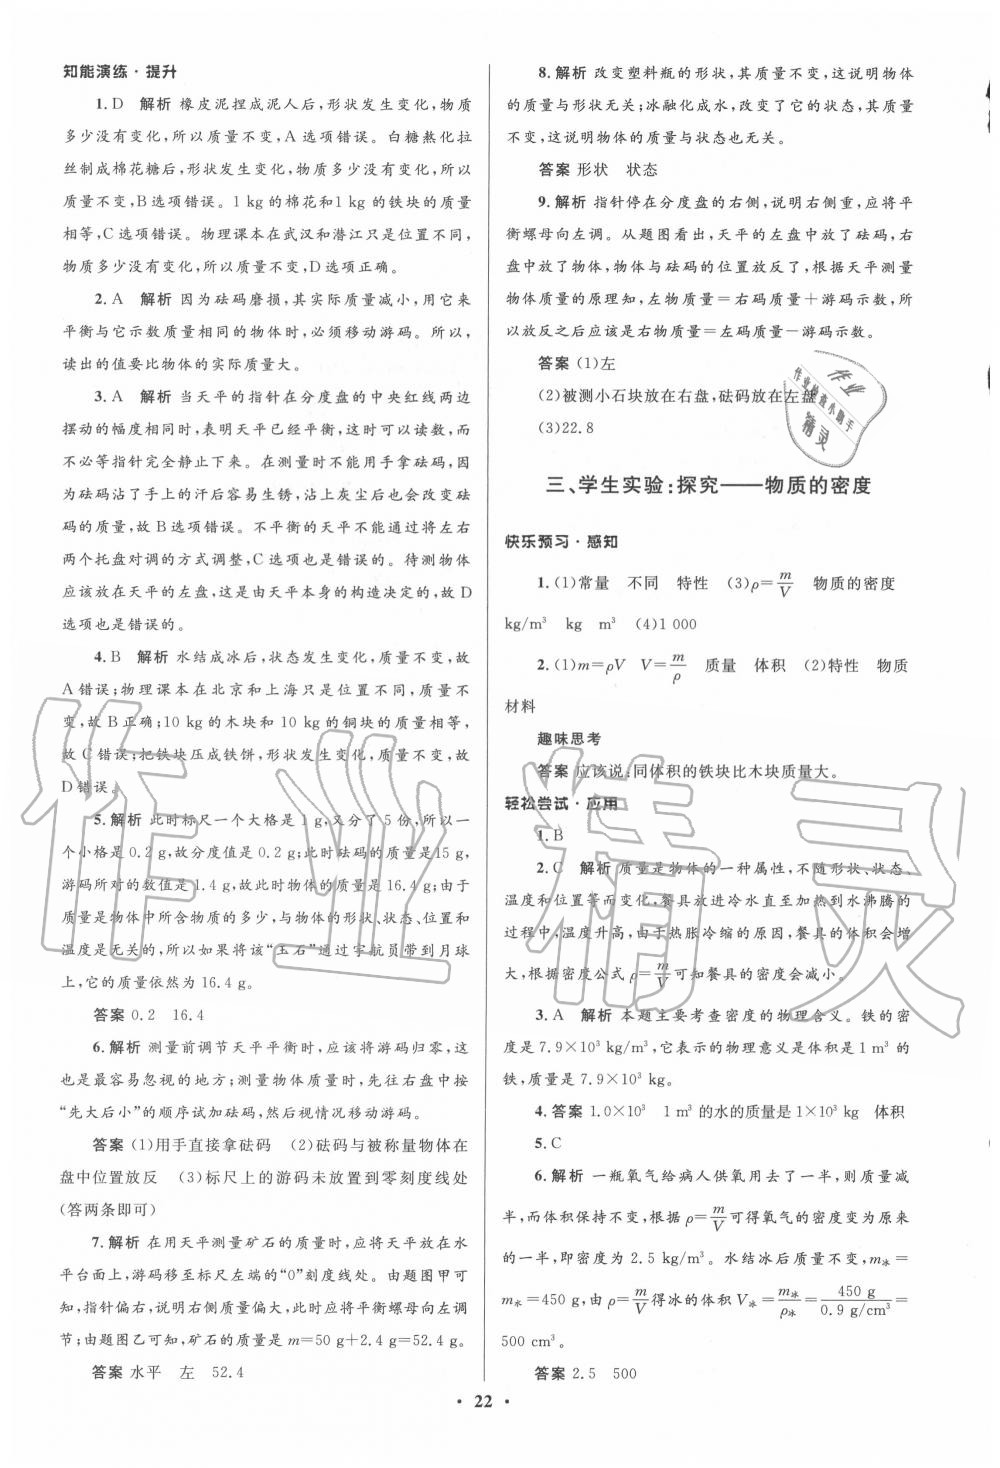 知能演练·提升
1.D 解析 橡皮泥捏成泥人后,形状发生变化,物质
多少没有变化,所以质量不变,A选项错误。白糖熬化拉
丝制成棉花糖后,形状发生变化,物质多少没有变化,所以
质量不变,B选项错误。1 kg的棉花和1 kg的铁块的质量
相等,C选项错误。物理课本在武汉和潜江只是位置不同,
物质多少没有发生变化,所以质量不变,D选项正确。
2.A 解析 因为砝码磨损,其实际质量减小,用它来
平衡与它示数质量相同的物体时,必须移动游码。所以,
读出的值要比物体的实际质量大。
3.A 解析 当天平的指针在分度盘的中央红线两边
摆动的幅度相同时,表明天平已经平衡,这时可以读数,而
不必等指针完全静止下来。在测量时不能用手拿砝码,因
为砝码沾了手上的汗后容易生锈,沾上灰尘后也会改变砝
码的质量,故B选项错误。不平衡的天平不能通过将左右
两个托盘对调的方式调整,C选项也是错误的。待测物体
应该放在天平的左盘,这是由天平本身的构造决定的,故D
选项也是错误的。
4.B 解析 水结成冰后,状态发生变化,质量不变,故
A错误;物理课本在北京和上海只是位置不同,质量不
变,故B正确;10 kg的木块和10 kg的铜块的质量相等,
故C错误;把铁块压成铁饼,形状发生变化,质量不变,故
D错误。
5.解析 此时标尺一个大格是1 g,又分了5份,所以一
个小格是0.2 g,故分度值是0.2 g;此时砝码的质量是15 g,
游码所对的数值是1.4 g,故此时物体的质量是16.4 g;由于
质量是物体中所含物质的多少,与物体的形状、状态、位置和
温度是无关的,所以如果将该“玉石”通过宇航员带到月球
上,它的质量依然为16.4 g。
答案 0.2 16.4
6.解析 测量前调节天平平衡时,应该将游码归零,这
也是最容易忽视的地方;测量物体质量时,先往右盘中按
“先大后小”的顺序试加砝码,然后视情况移动游码。
答案 (1)用手直接拿砝码 (2)砝码与被称量物体在
盘中位置放反 (3)标尺上的游码未放置到零刻度线处
(答两条即可)
7.解析 在用天平测量矿石的质量时,应将天平放在水
平台面上,游码移至标尺左端的“0”刻度线处。由题图甲可
知,指针偏右,说明右侧质量偏大,此时应将平衡螺母向左调
节;由题图乙可知,矿石的质量是m=50 g+2.4 g=52.4 g。
答案 水平 左 52.4
8.解析 改变塑料瓶的形状,其质量不变,这说明物体
的质量与形状无关;冰融化成水,改变了它的状态,其质量
不变,这说明物体的质量与状态也无关。
答案 形状 状态
9.解析 指针停在分度盘的右侧,说明右侧重,应将平
衡螺母向左调。从题图看出,天平的左盘中放了砝码,右
盘中放了物体,物体与砝码的位置放反了,根据天平测量
物体质量的原理知,左物质量=右码质量+游码示数,所
以放反之后应该是右物质量=左码质量-游码示数。
答案 (1)左
(2)被测小石块放在右盘,砝码放在左盘
(3)22.8
作业
作业检查小助手
精灵
三、学生实验:探究——物质的密度
快乐预习·感知
1.(1)常量 不同 特性 (3)ρ=m/V 物质的密度
kg/m³ kg m³ (4)1 000
2.(1)m=ρV V=m/ρ 质量 体积 (2)特性 物质
材料
趣味思考
答案 应该说:同体积的铁块比木块质量大。
轻松尝试·应用
1.B
2.C 解析 质量是物体的一种属性,不随形状、状态、
温度和位置等而变化,餐具放进冷水直至加热到水沸腾的
过程中,温度升高,由于热胀冷缩的原因,餐具的体积会增
大,根据密度公式ρ=m/V可知餐具的密度会减小。
3.A 解析 本题主要考查密度的物理含义。铁的密
度是7.9×10³ kg/m³,它表示的物理意义是体积是1 m³的
铁,质量是7.9×10³ kg。
4.答案 1.0×10³ 1 m³的水的质量是1×10³ kg 体积
5.C
6.解析 一瓶氧气给病人供氧用去了一半,则质量减
半,而体积保持不变,根据ρ=m/V可得氧气的密度变为原来
的一半,即密度为2.5 kg/m³。水结冰后质量不变,m冰=
m水=450 g,由ρ=m/V得冰的体积V冰=m冰/ρ冰=450 g/0.9 g/cm³=
500 cm³。
答案 2.5 500
22
作业精灵